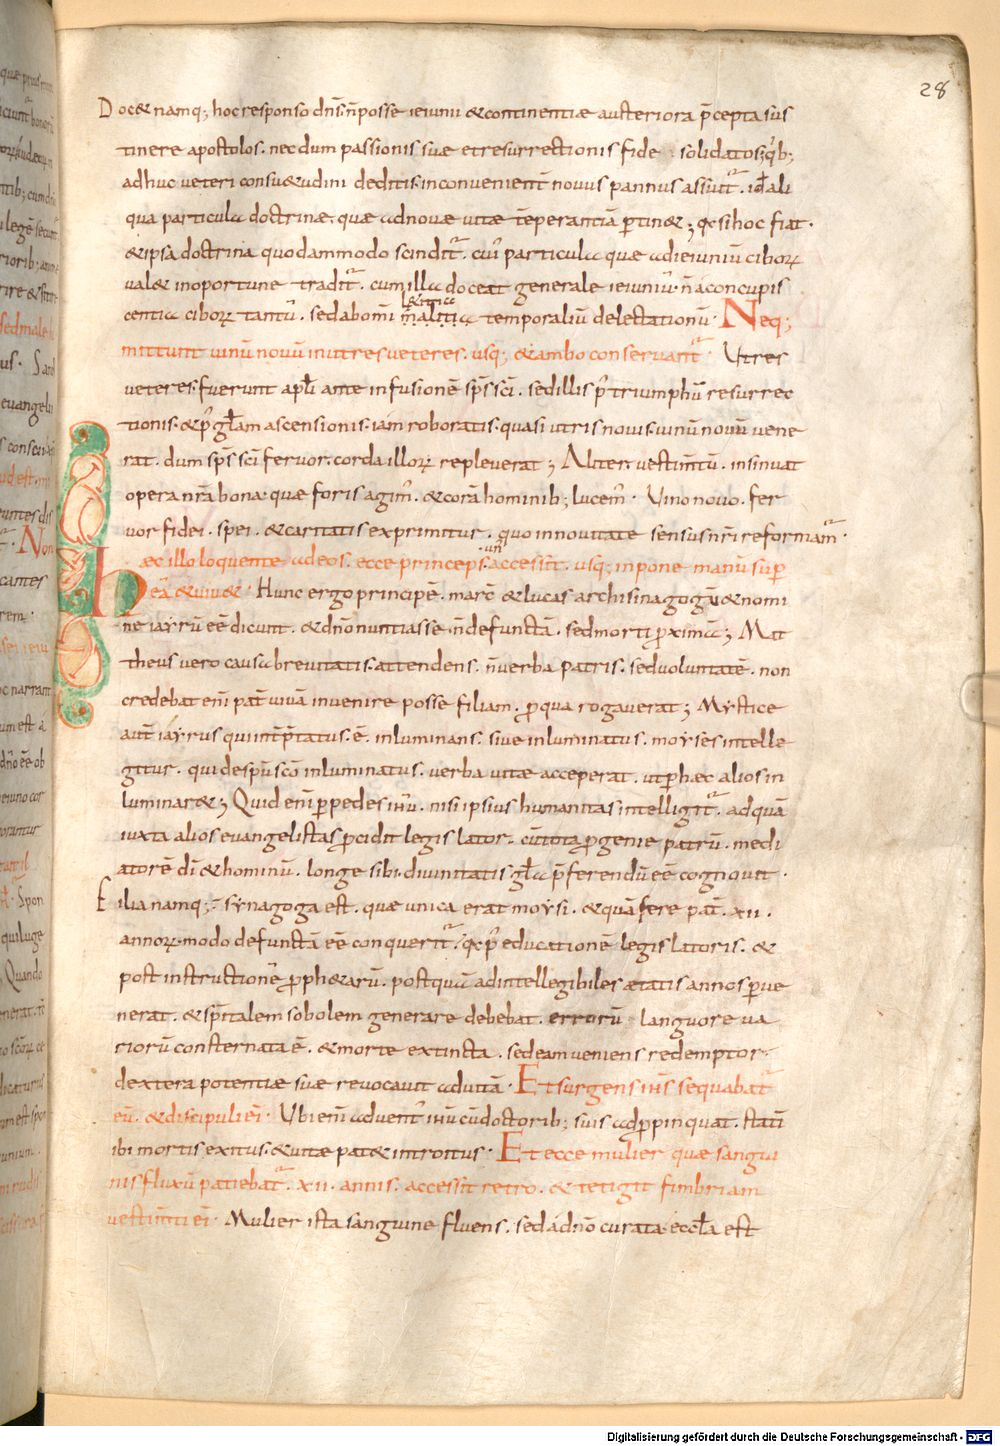 28
Doc& namq; hoc responso dn̄s. n̄ posse ieiunii & continentiae austeriora p̄cepta sus
tinere apostolos. nec dum passionis suae et resurrectionis fide solidatos; qb;
adhuc veteri consu&udini deditis. inconvenient̄ novus pannus assuit᷑. id ē ali
qua particula doctrinae. quae ad novae vitae tēperanciā ꝑtin&; qć si hoc fiat.
& ipsa doctrina quodammodo scindit᷑. cui᾽ particula quae ad ieiuniū ciboꝝ
val& inoportune tradit᷑. cum illa doceat generale ieiuniū. n̄ a concupis
centia ciboꝝ tantū. sed ab omi malitia temporaliū delectationū. Neq;
l&itia
mittunt vinū novū in utres veteres. usq; & ambo conservant᷑. Utres
veteres. fuerunt apl̄i ante infusionē sp̄s sc̄i. sed illis p᾽ triumphū resurrec
tionis. & p᾽ gl̄am ascensionis. iam roboratis. quasi utris novis. vinū novū vene
rat. dum sp̄s sc̄i fervor. corda illoꝝ repleverat; Aliter. vestim̄tū. insinuat
opera nr̄a bona. quae foris agim᾽. & corā hominib; lucem᾽. Vino novo. fer
vor fidei. spei. & caritatis exprimitur. quo in novitate sensus nr̄i reformam᷑.
haec illo loquente ad eos. ecce princeps. accessit. usq; inpone manū sup̄
un᾽
eā & viv&. Hunc ergo principē. marc᾽ & lucas archisinagogū & nomi
ne iayrū eē dicunt. & dn̄o nuntiasse n̄ defunctā. sed morti ꝓximā; Mat
theus vero causa brevitatis. attendens. n̄ verba patris. sed voluntatē. non
credebat eni pat̄ vivā invenire posse filiam. ꝓ qua rogaverat; Mystice
aut̄ iayrus qui int̄p̄tatus. ē. inluminans. sive inluminatus. moyses intelle
gitur. qui de sp̄u sc̄o inluminatus. verba vitae acceperat. ut ꝑ haec alios in
luminar&; Quid eni ꝑ pedes ih̄u. nisi ipsius humanitas intelligit᷑. ad quā
iuxta alios evangelistas ꝓcidit legis lator. cū tota ꝓgenie patrū. medi
atorē dī & hominū. longe sibi. divinitatis gl̄a p̄ferendū eē cognovit.
Filia namq; synagoga est. quae unica erat moysi. & quā fere pat̄. xii.
annoꝝ. modo defunctā eē conquerit᷑. qć p᾽ educationē legis latoris. &
post instructionē ꝓph&arū. postquā ad intellegibiles aetatis annos ꝑve
nerat. & sp̄italem sobolem generare debebat. errorū languore va
riorū consternata ē. & morte extincta. sed eam veniens redemptor.
dextera potentiae suae revocavit ad vitā. Et surgens ih̄s sequabat᷑
eū. & discipuli ei᾽. Ubi eni advent᾽ ih̄u cū doctorib; suis adꝓpinquat. statī
ibi mortis exitus. & vitae pat& introitus. Et ecce mulier quae sangui
nis fluxū patiebat᷑. xii. annis. accessit retro. & tetigit fimbriam
vestim̄ti ei᾽. Mulier ista sanguine fluens. sed a dn̄o curata. eccl̄a est
Digitalisierung gefördert durch die Deutsche Forschungsgemeinschaft - DFG